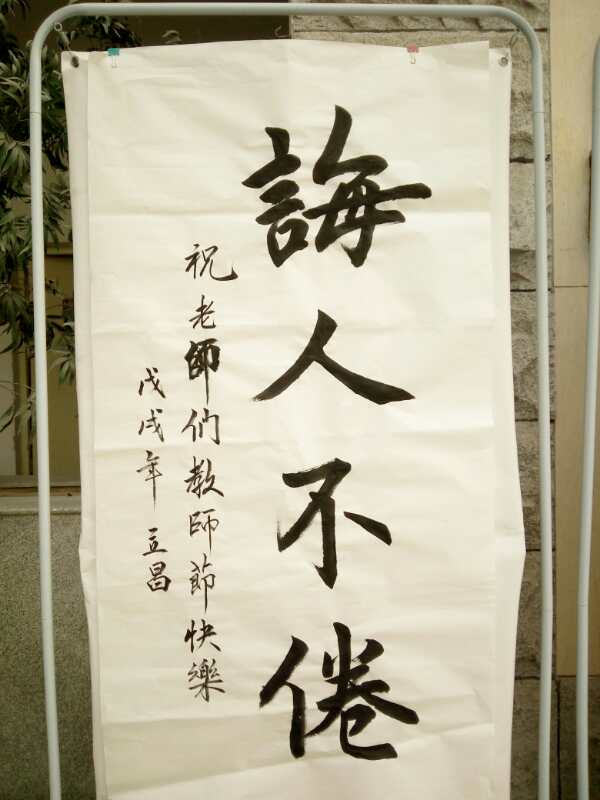 誨人不倦
祝老師們教師節快樂
戊戌年 立昌